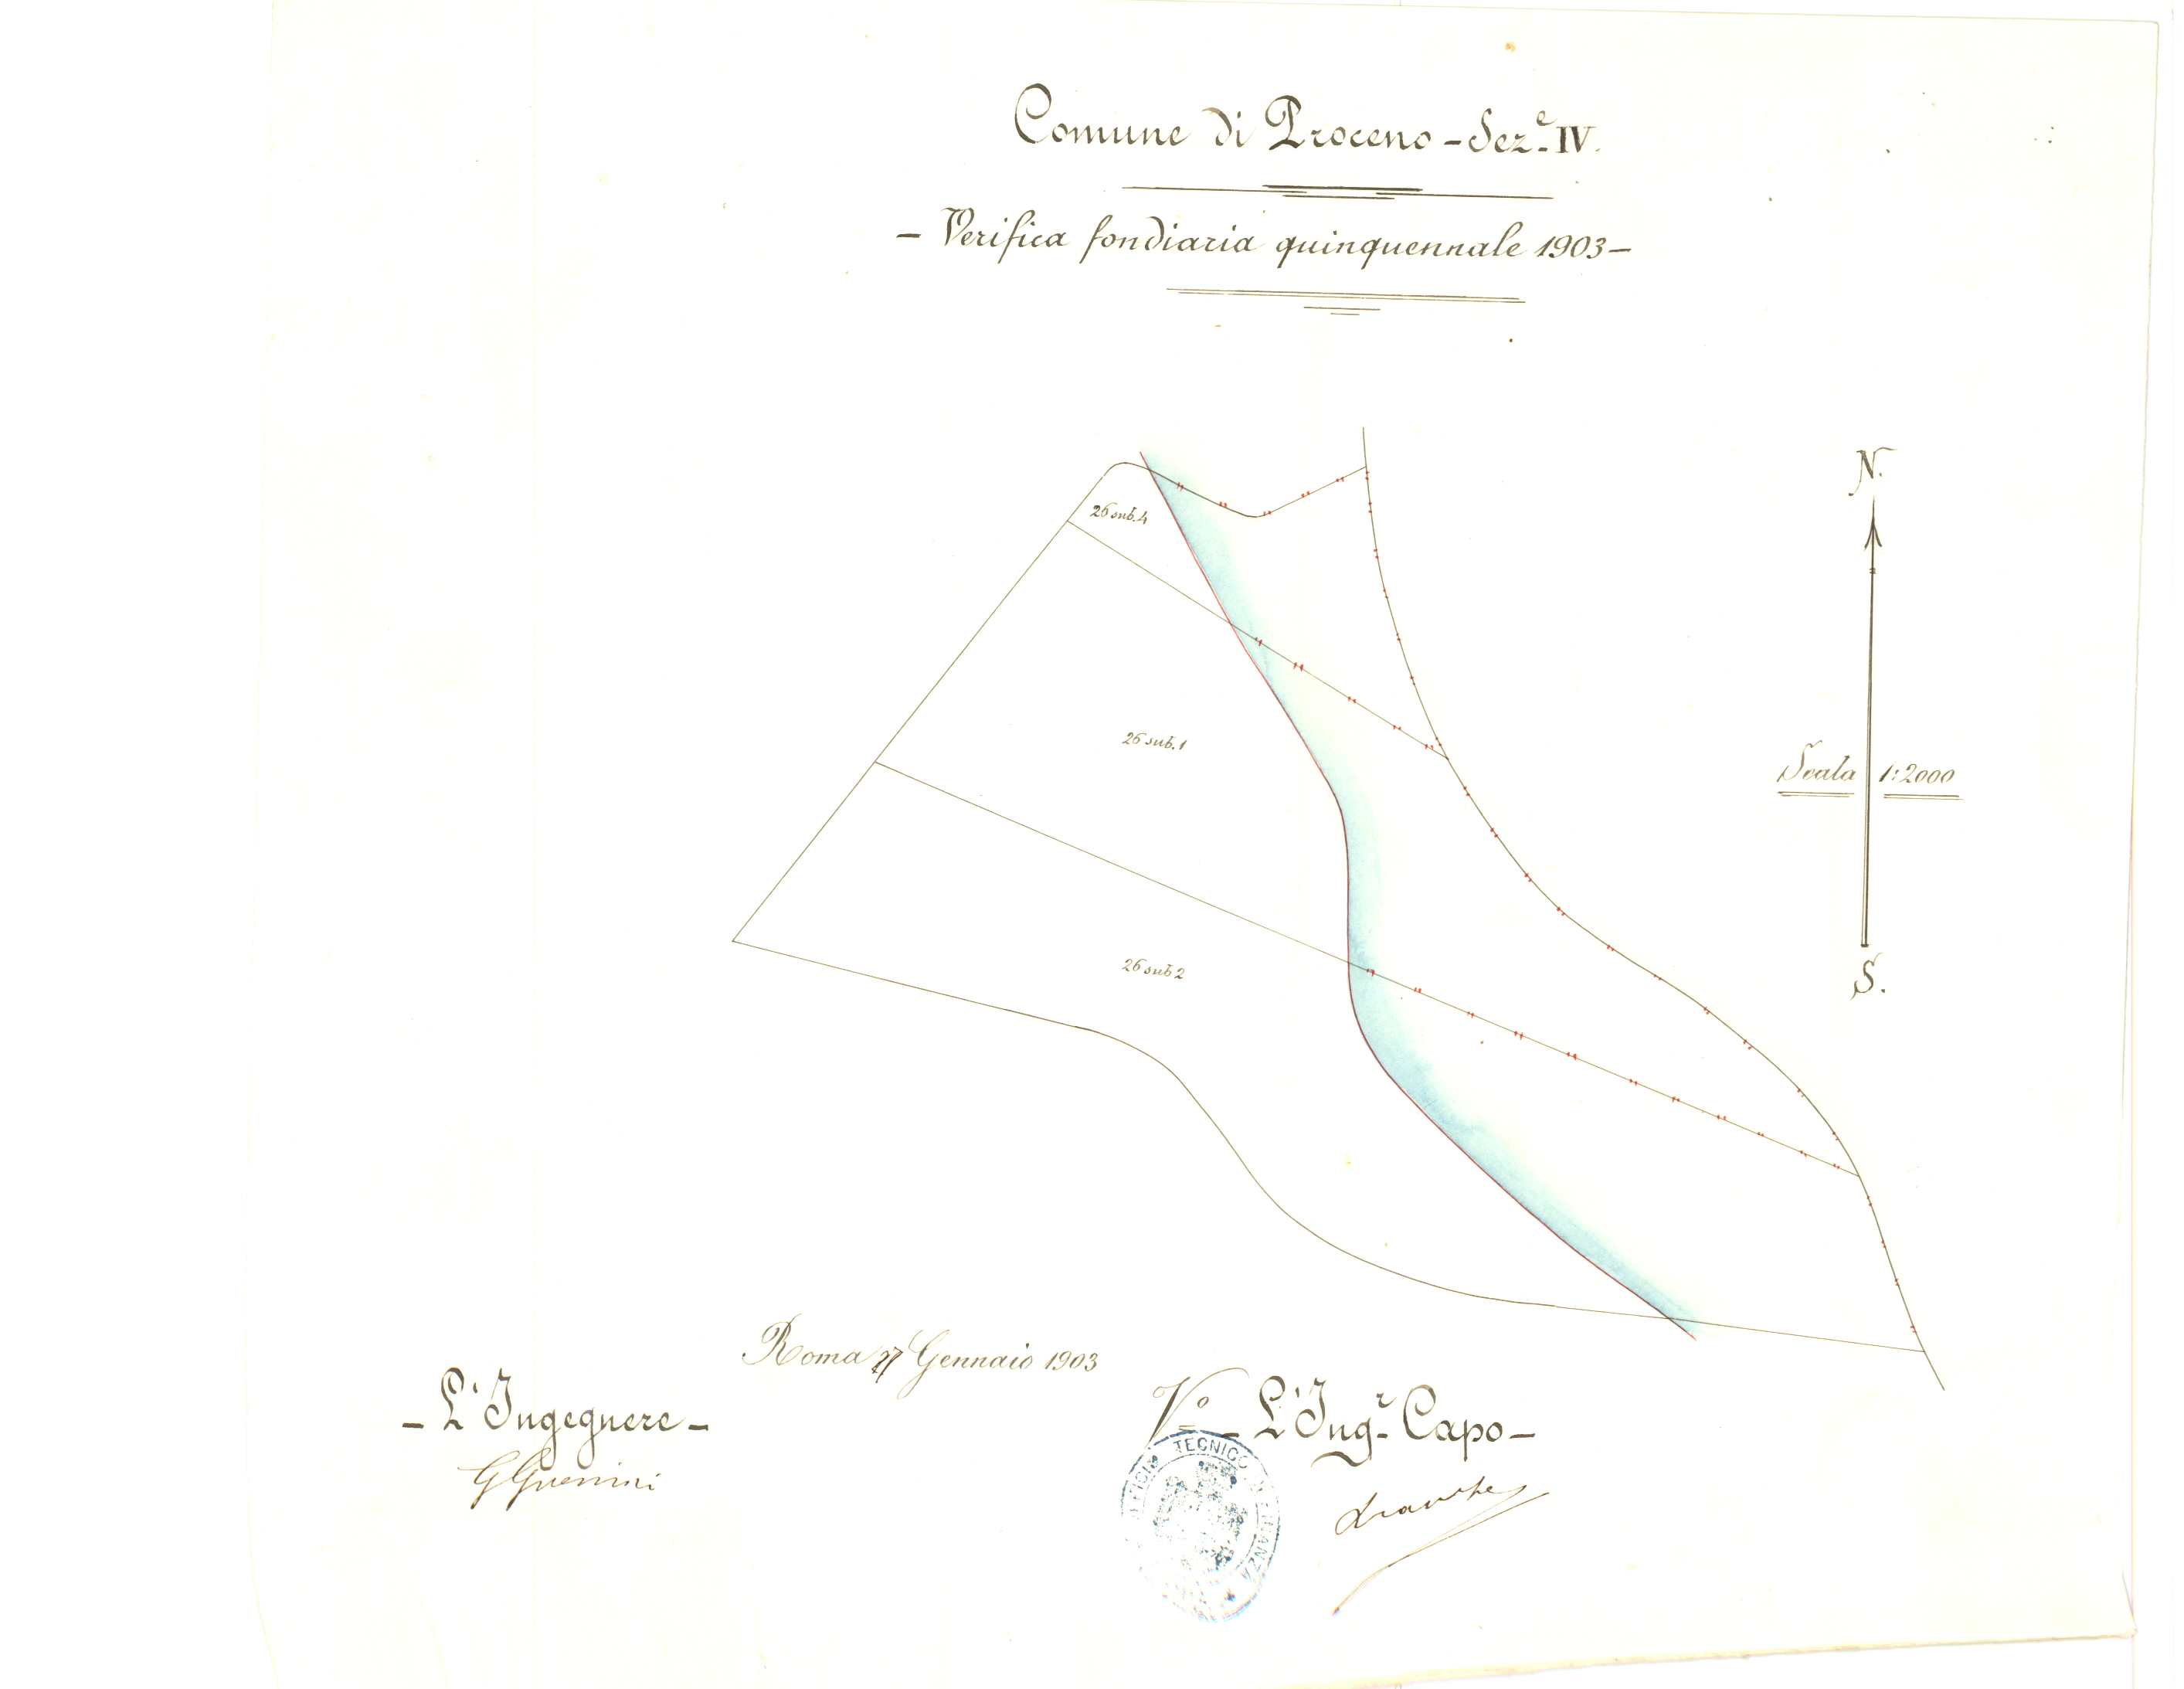 Comune di Proceno - Sez.e IV.
- Verifica fondiaria quinquennale 1903 -
N.
26 sub. 4
26 sub. 1
Scala 1:2000
26 sub 2
S.
Roma 27 Gennaio 1903
- L'Ingegnere -
V.o - L'Ing.r Capo -
TECNICO DI FINANZA